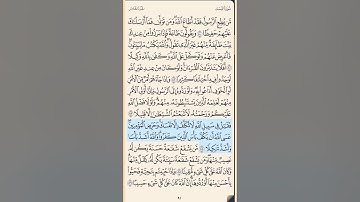 مَّن يُطِعِ الرَّسُولَ فَقَدْ أَطَاعَ اللَّهَ وَمَن تَوَلَّىٰ فَمَا أَرْسَلْنَاكَ
عَلَيْهِمْ حَفِيظًا ٨٠ وَيَقُولُونَ طَاعَةٌ فَإِذَا بَرَزُوا مِنْ عِندِكَ
بَيَّتَ طَائِفَةٌ مِّنْهُمْ غَيْرَ الَّذِي تَقُولُ وَاللَّهُ يَكْتُبُ مَا يُبَيِّتُونَ
فَأَعْرِضْ عَنْهُمْ وَتَوَكَّلْ عَلَى اللَّهِ وَكَفَىٰ بِاللَّهِ وَكِيلًا ٨١
أَفَلَا يَتَدَبَّرُونَ الْقُرْآنَ وَلَوْ كَانَ مِنْ عِندِ غَيْرِ اللَّهِ
لَوَجَدُوا فِيهِ اخْتِلَافًا كَثِيرًا ٨٢ وَإِذَا جَاءَهُمْ أَمْرٌ مِّنَ الْأَمْنِ
أَوِ الْخَوْفِ أَذَاعُوا بِهِ وَلَوْ رَدُّوهُ إِلَى الرَّسُولِ وَإِلَىٰ أُولِي الْأَمْرِ
مِنْهُمْ لَعَلِمَهُ الَّذِينَ يَسْتَنبِطُونَهُ مِنْهُمْ وَلَوْلَا فَضْلُ اللَّهِ
عَلَيْكُمْ وَرَحْمَتُهُ لَاتَّبَعْتُمُ الشَّيْطَانَ إِلَّا قَلِيلًا ٨٣
فَقَاتِلْ فِي سَبِيلِ اللَّهِ لَا تُكَلَّفُ إِلَّا نَفْسَكَ وَحَرِّضِ الْمُؤْمِنِينَ
عَسَى اللَّهُ أَن يَكُفَّ بَأْسَ الَّذِينَ كَفَرُوا وَاللَّهُ أَشَدُّ بَأْسًا
وَأَشَدُّ تَنكِيلًا ٨٤ مَّن يَشْفَعْ شَفَاعَةً حَسَنَةً يَكُن لَّهُ
نَصِيبٌ مِّنْهَا وَمَن يَشْفَعْ شَفَاعَةً سَيِّئَةً يَكُن لَّهُ كِفْلٌ مِّنْهَا
وَكَانَ اللَّهُ عَلَىٰ كُلِّ شَيْءٍ مُّقِيتًا ٨٥ وَإِذَا حُيِّيتُم بِتَحِيَّةٍ فَحَيُّوا
بِأَحْسَنَ مِنْهَا أَوْ رُدُّوهَا إِنَّ اللَّهَ كَانَ عَلَىٰ كُلِّ شَيْءٍ حَسِيبًا ٨٦